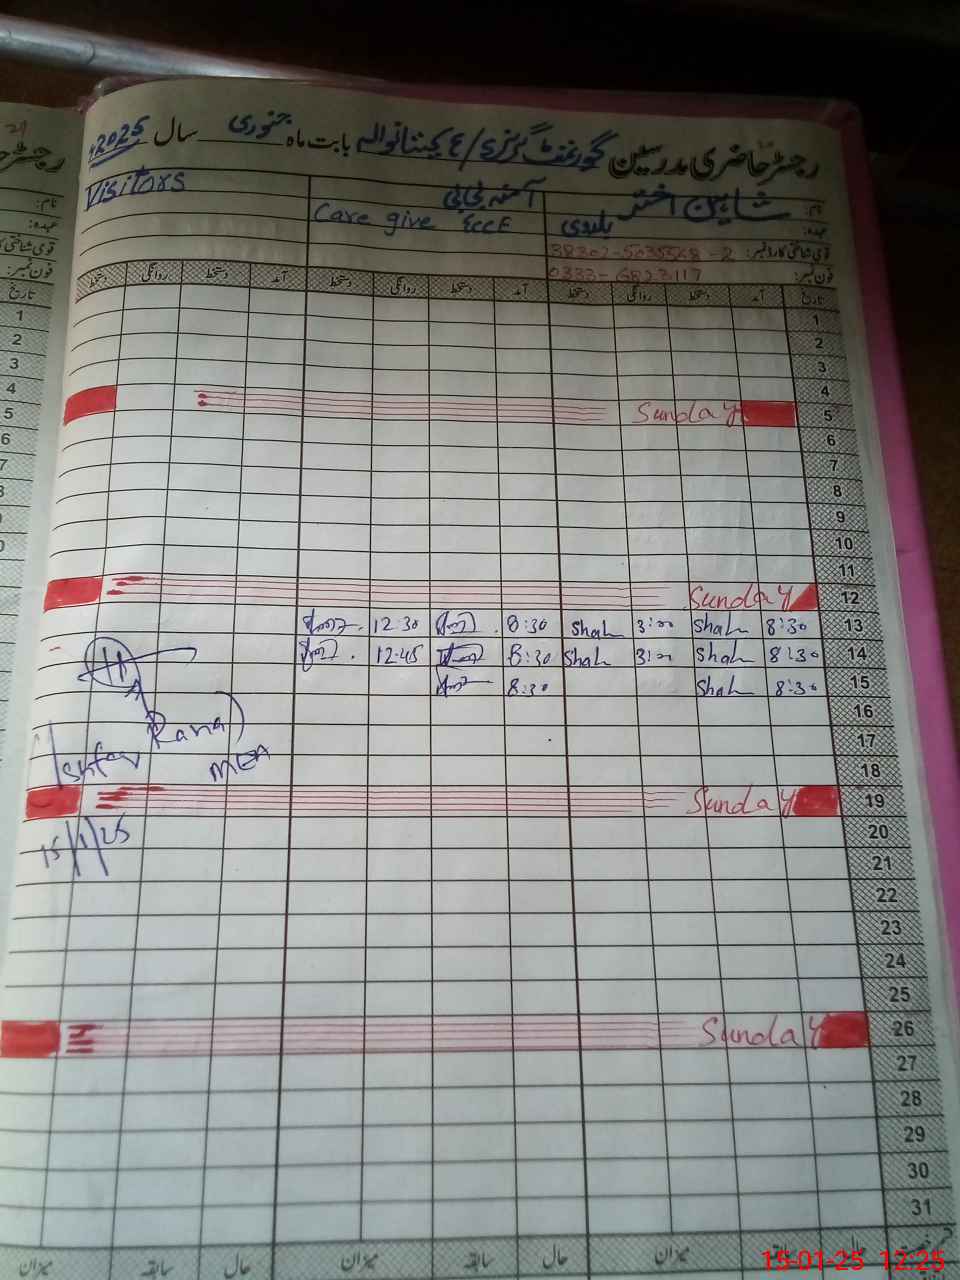 رجسٹر حاضری مدرسین گورنمنٹ گرلز بابت ماہ جنوری سال 2025ء
نام: شاہین اختر
آمنہ بی بی
Visitors
عہدہ:
Care give ECCE
قومی شناختی کارڈ نمبر:
فون نمبر: 0333-6823117
تاریخ آمد دستخط روانگی دستخط آمد دستخط روانگی دستخط آمد دستخط روانگی دستخط
1
2
3
4
5 Sunday
6
7
8
9
10
11
12 Sunday
13 8:30 Shah 3:00 Shah 8:30 12:30
14 8:30 Shah 3:00 Shah 8:30 12:45
15 8:30 Shah 8:30
16
17
Rana
MEA
18
19 Sunday
20
15/1/25
21
22
23
24
25
26 Sunday
27
28
29
30
31
حال سابقہ میزان حال سابقہ میزان حال سابقہ میزان
15-01-25 12:25